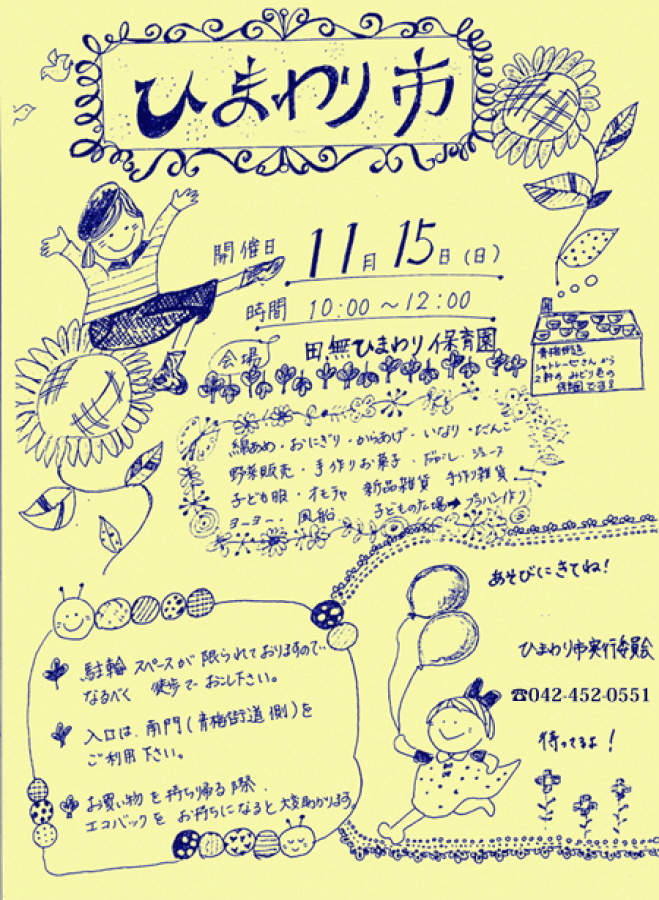 ひまわり市
開催日 11月15日(日)
時間 10:00～12:00
会場 田無ひまわり保育園
青梅街道
シャトレーゼさんから
2軒の みどり色の
保育園です!
綿あめ・おにぎり・からあげ・いなり・だんご
野菜販売・手作りお菓子・だがし・ジュース
子ども服・オモチャ 新品雑貨 手作り雑貨
ヨーヨー・風船 子どもの広場➡プラバン作り
あそびにきてね!
ひまわり市実行委員会
☎042-452-0551
待ってるよ!
駐輪スペースが限られておりますので…
なるべく 徒歩でおこし下さい。
入口は、南門(青梅街道側)を
ご利用下さい。
お買い物を持ち帰る際、
エコバックをお持ちになると大変助かります。